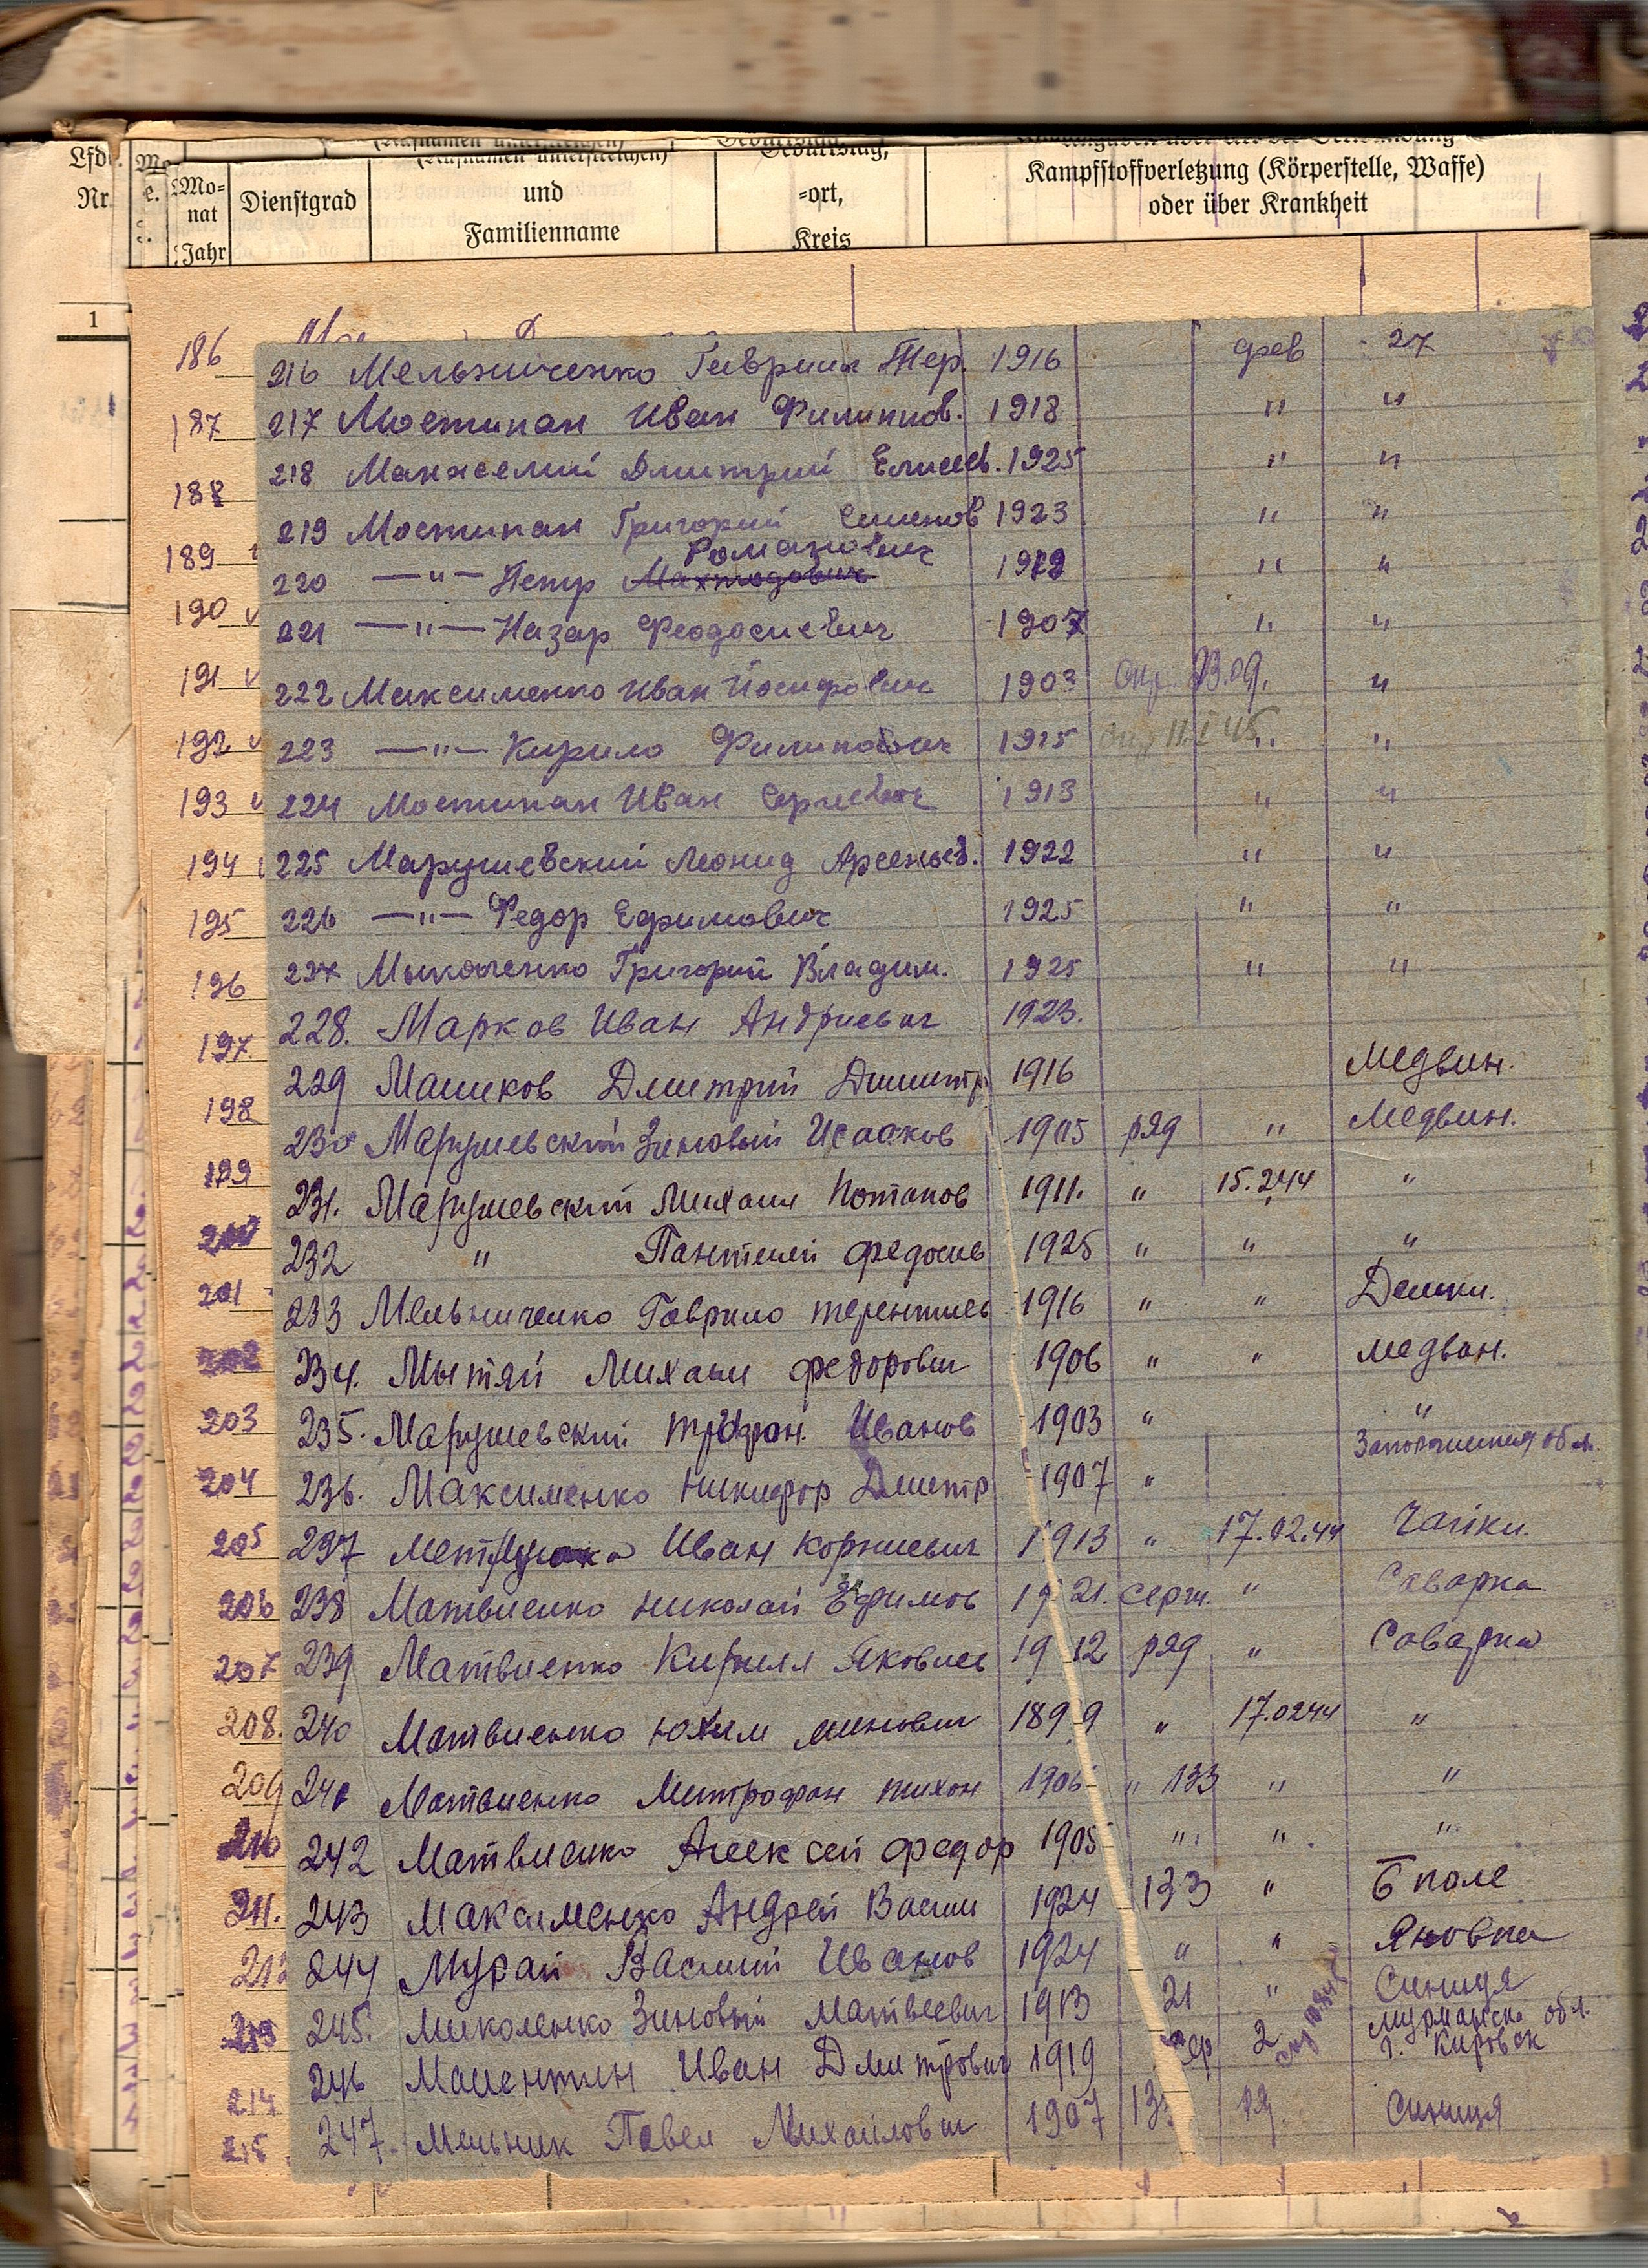 Lfd. Nr.
Mo-
nat
Jahr
Dienstgrad
(Rufnamen unterstreichen)
und
Familienname
Geburtstag,
-ort,
Kreis
Kampfstoffverletzung (Körperstelle, Waffe)
oder über Krankheit
1
186
187
188
189
190
191
192
193
194
195
196
197
198
199
201
203
204
205
206
207
208.
209
210
211.
213
214
215
216 Мельниченко Гавриил Тер. 1916 фев 27
217 Мостипан Иван Филиппов. 1918 " "
218 Манжелий Дмитрий Елисеев. 1925 " "
219 Мостипан Григорий Семенов 1923 " "
Романович
220 —"— Петр 1912 " "
221 —"— Назар Феодосиевич 1907 " "
222 Максименко Иван Йосифович 1903 "
223 —"— Кирило Филипович 1915 11.I 45 " "
224 Мостипан Иван Сергиевич 1913 " "
225 Марушевский Леонид Арсеньев. 1922 " "
226 —"— Федор Ефимович 1925 " "
227 Григорий Владим. 1925 " "
228. Марков Иван Андриевич 1923.
229 Машков Дмитрий Дмитр 1916 Медвин.
230 Марушевский Зиновый Исааков 1905 ряд " Медвин.
231. Марушевский Михаил Потапов 1911. " 15.244 "
232 " Пантелей Федосиев 1925 " " "
233 Мельниченко Гаврило Терентиев 1916 " " Дешки.
234. Мытяй Михаил Федорович 1906 " " Медвин.
235. Марушевский Трофон. Иванов 1903 " "
236. Максименко Никифор Дмитр 1907 "
237 Иван Корниевич 1913 " 17.02.44 Чайки.
238 Матвиенко Николай Ефимов 1921. серж. " Саварка
239 Матвиенко Кирилл Яковлев 1912 ряд " Саварка
240 Матвиенко Юхим 1899 " 17.0244 "
241 Матвиенко Митрофан Тихон 1906 " 133 " "
242 Матвиенко Алексей Федор 1905 " " "
243 Максименко Андрей Васил 1924 133 " Б поле
244 Мурай Василий Иванов 1924 " " Яновка
245. Миколенко Зиновый Матвеевич 1913 21 " Синиця
Мурманска обл.
246 Иван Дмитрович 1919 2 г. Кировск
247. Мельник Павел Михайлович 1907 Синиця